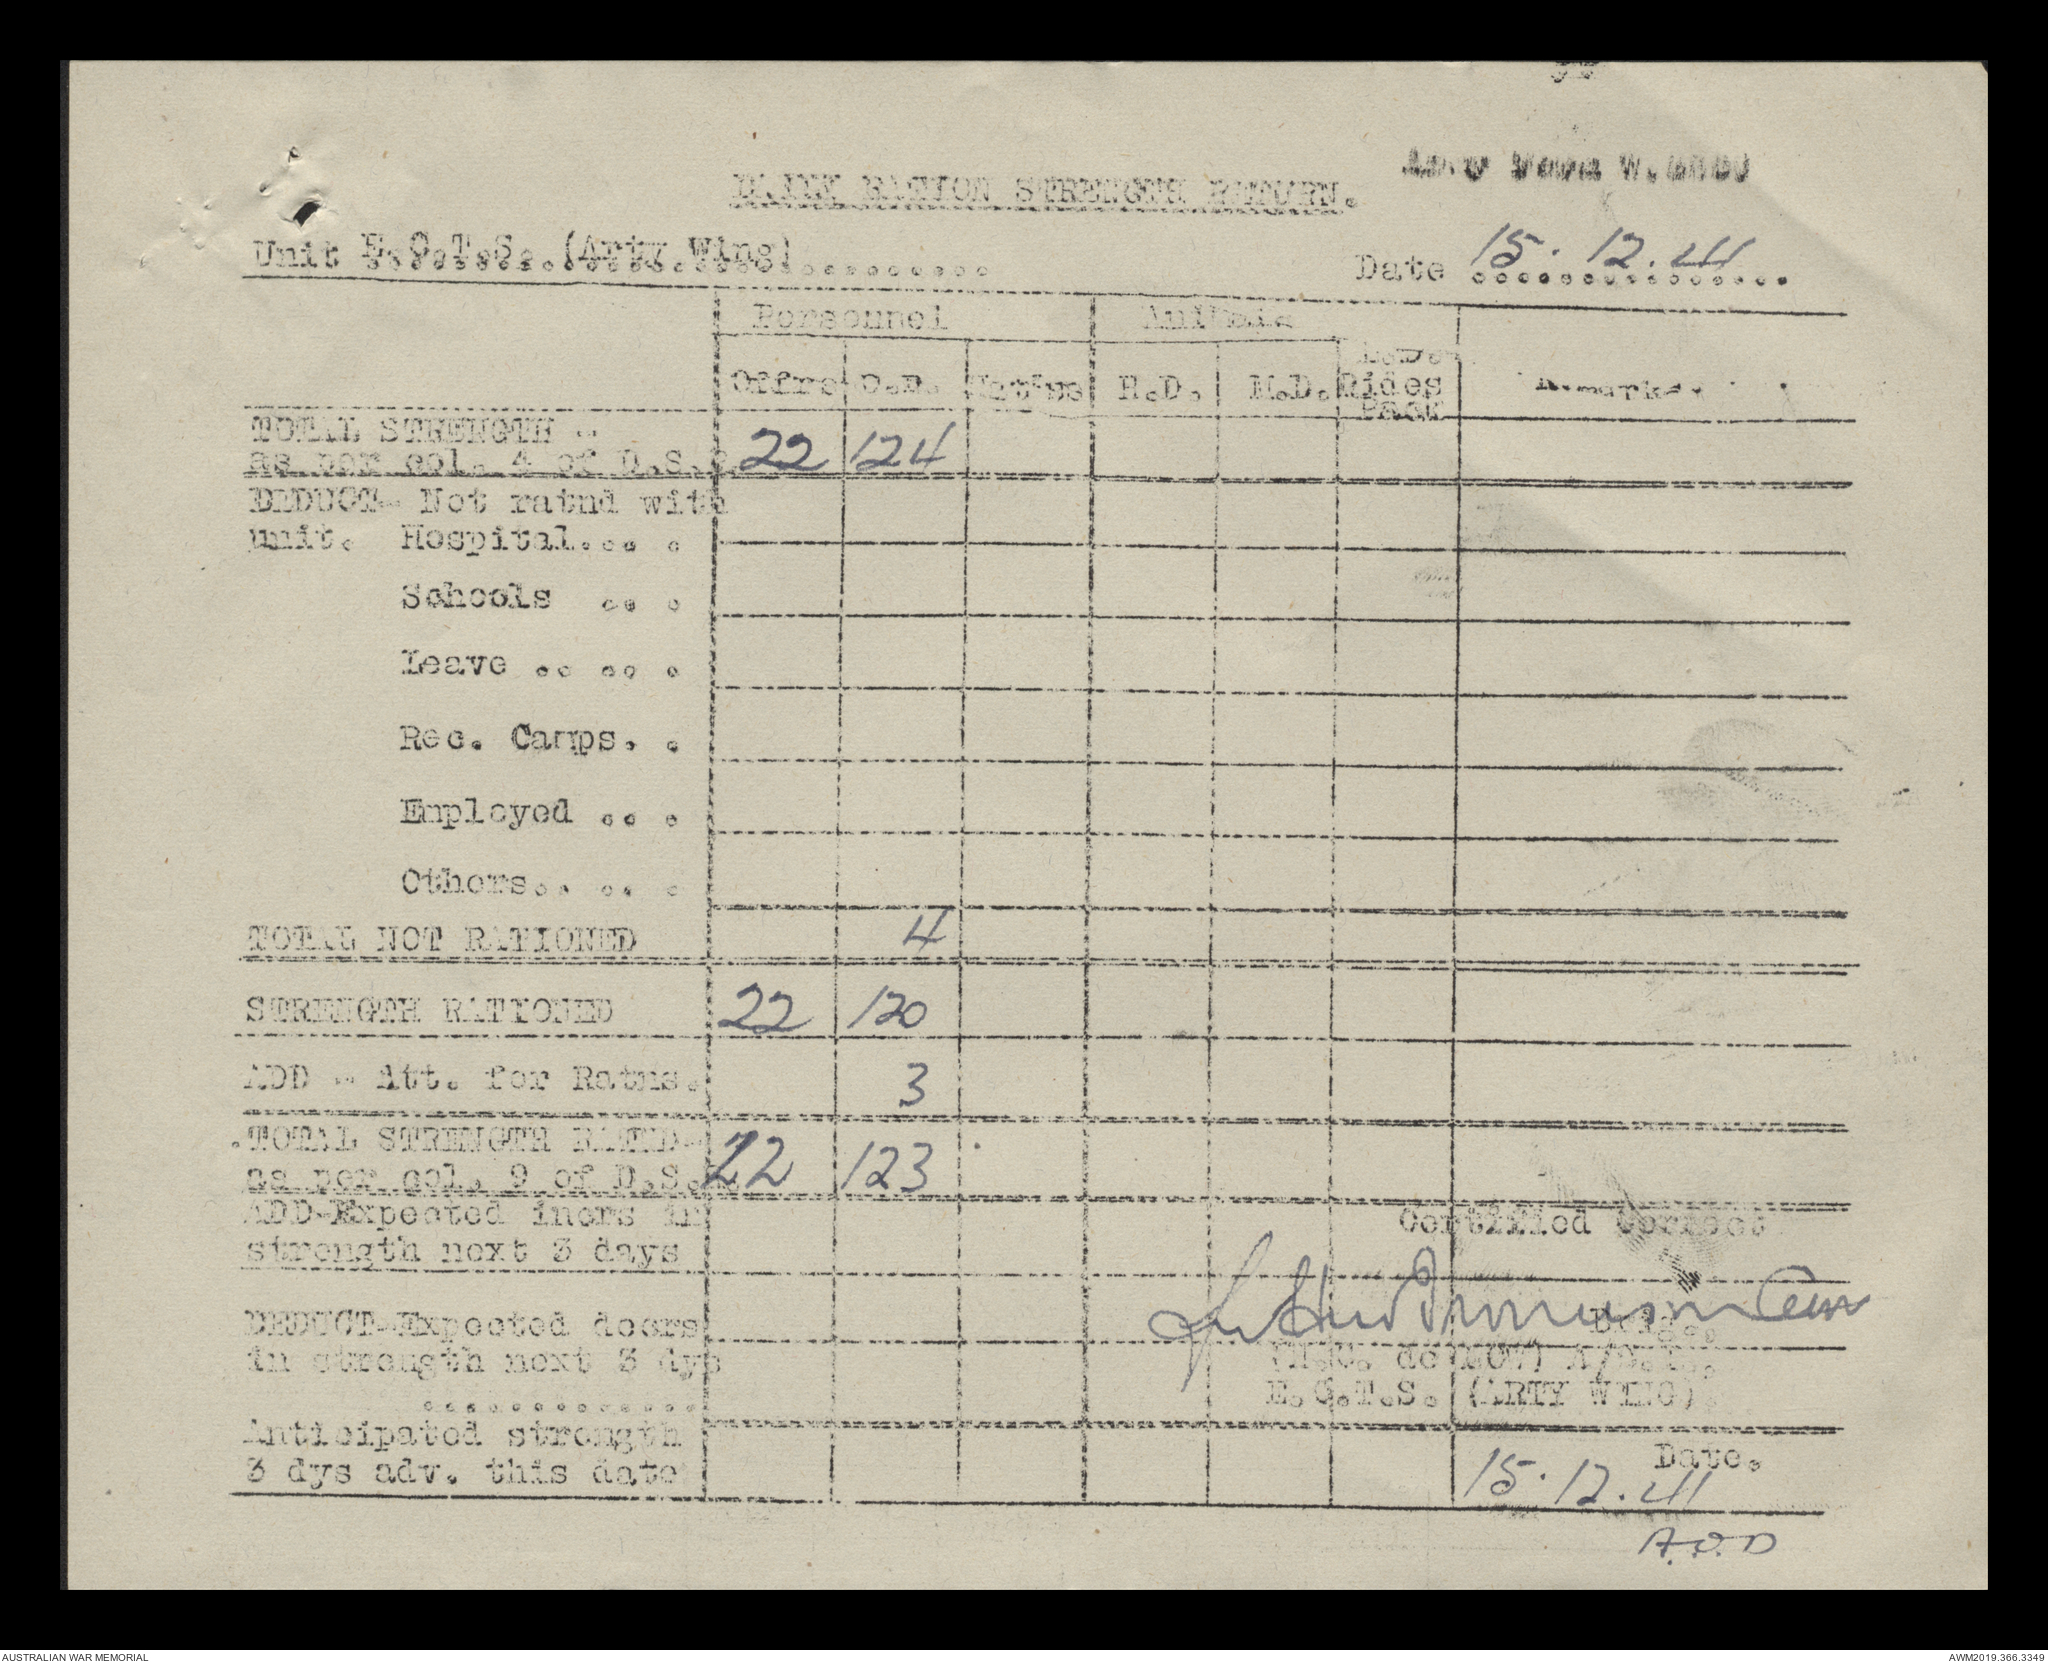 Army Form W.
DAILY RATION STRENGTH RETURN.
Unit E.C.T.S. (Arty Wing)..........
Date 15.12.41
Personnel Animals
Offrs O.R. Native H.D. M.D. L.D. Rides Pack Remarks.
TOTAL STRENGTH -
as per col. 4 of D.S.S. 22 124
DEDUCT- Not ratnd with
unit. Hospital.... .
Schools .. .
Leave .. .. .
Rec. Camps. .
Employed .. .
Others.. .. .
TOTAL NOT RATIONED 4
STRENGTH RATIONED 22 120
ADD - Att. for Ratns. 3
TOTAL STRENGTH RATND-
as per col. 9 of D.S.S. 22 123
ADD-Expected incrs in Certified Correct
strength next 3 days
DEDUCT-Expected decrs
in strength next 3 dys
E.C.T.S. (ARTY WING).
.............
Anticipated strength Date.
3 dys adv. this date 15.12.41
A.O.D
AUSTRALIAN WAR MEMORIAL AWM2019.366.3349